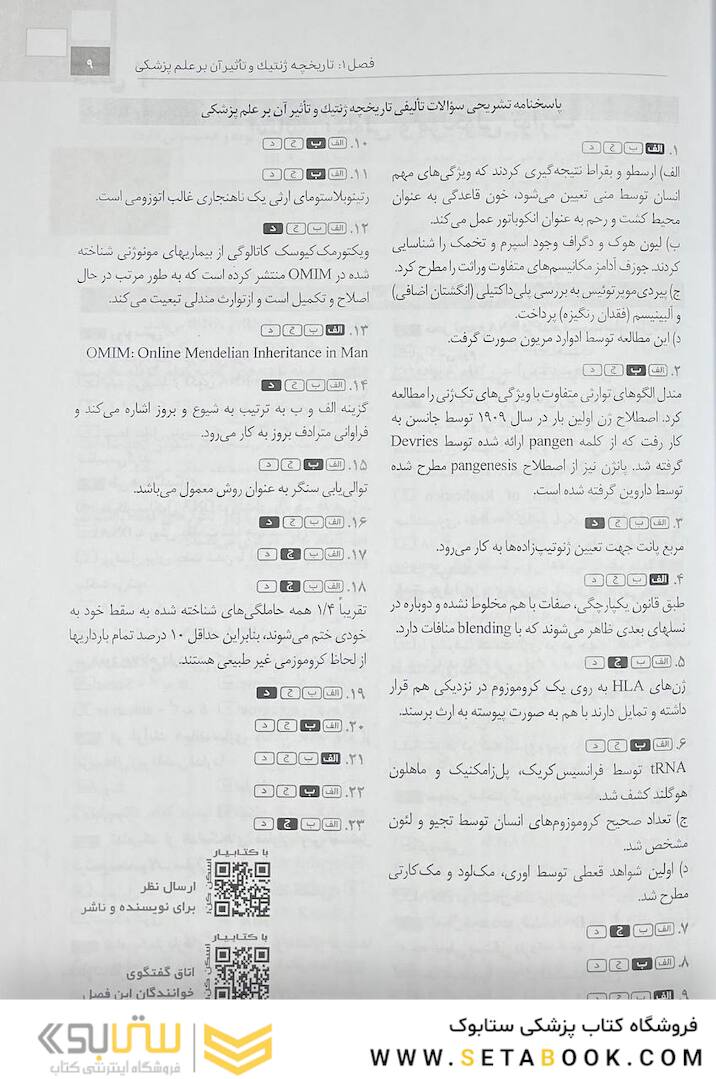 فصل ۱: تاریخچه ژنتیك و تأثیر آن بر علم پزشکی
۹
پاسخنامه تشریحی سؤالات تألیفی تاریخچه ژنتیك و تأثیر آن بر علم پزشکی
۱. الف ب ج د
الف) ارسطو و بقراط نتیجه‌گیری کردند که ویژگی‌های مهم
انسان توسط منی تعیین می‌شود، خون قاعدگی به عنوان
محیط کشت و رحم به عنوان انکوباتور عمل می‌کند.
ب) لیون هوک و دگراف وجود اسپرم و تخمک را شناسایی
کردند. جوزف آدامز مکانیسم‌های متفاوت وراثت را مطرح کرد.
ج) پیردی‌موپرتوئیس به بررسی پلی‌داکتیلی (انگشتان اضافی)
و آلبینیسم (فقدان رنگیزه) پرداخت.
د) این مطالعه توسط ادوارد مریون صورت گرفت.
۲. الف ب ج د
مندل الگوهای توارثی متفاوت با ویژگی‌های تک‌ژنی را مطالعه
کرد. اصطلاح ژن اولین بار در سال ۱۹۰۹ توسط جانسن به
کار رفت که از کلمه pangen ارائه شده توسط Devries
گرفته شد. پانژن نیز از اصطلاح pangenesis مطرح شده
توسط داروین گرفته شده است.
۳. الف ب ج د
مربع پانت جهت تعیین ژنوتیپ‌زاده‌ها به کار می‌رود.
۴. الف ب ج د
طبق قانون یکپارچگی، صفات با هم مخلوط نشده و دوباره در
نسلهای بعدی ظاهر می‌شوند که با blending منافات دارد.
۵. الف ب ج د
ژن‌های HLA به روی یک کروموزوم در نزدیکی هم قرار
داشته و تمایل دارند با هم به صورت پیوسته به ارث برسند.
۶. الف ب ج د
tRNA توسط فرانسیس‌کریک، پل‌زامکنیک و ماهلون
هوگلند کشف شد.
ج) تعداد صحیح کروموزوم‌های انسان توسط تجیو و لئون
مشخص شد.
د) اولین شواهد قعطی توسط آوری، مک‌لود و مک‌کارتی
مطرح شد.
۷. الف ب ج د
۸. الف ب ج د
۹. الف ب ج د
۱۰. الف ب ج د
۱۱. الف ب ج د
رتینوبلاستومای ارثی یک ناهنجاری غالب اتوزومی است.
۱۲. الف ب ج د
ویکتورمک‌کیوسک کاتالوگی از بیماریهای مونوژنی شناخته
شده در OMIM منتشر کرده است که به طور مرتب در حال
اصلاح و تکمیل است و ازتوارث مندلی تبعیت می‌کند.
۱۳. الف ب ج د
OMIM: Online Mendelian Inheritance in Man
۱۴. الف ب ج د
گزینه الف و ب به ترتیب به شیوع و بروز اشاره می‌کند و
فراوانی مترادف بروز به کار می‌رود.
۱۵. الف ب ج د
توالی‌یابی سنگر به عنوان روش معمول می‌باشد.
۱۶. الف ب ج د
۱۷. الف ب ج د
۱۸. الف ب ج د
تقریباً ۱/۴ همه حاملگی‌های شناخته شده به سقط خود به
خودی ختم می‌شوند، بنابراین حداقل ۱۰ درصد تمام بارداریها
از لحاظ کروموزمی غیر طبیعی هستند.
۱۹. الف ب ج د
۲۰. الف ب ج د
۲۱. الف ب ج د
۲۲. الف ب ج د
۲۳. الف ب ج د
با کتابیار
اسکن کن!
ارسال نظر
برای نویسنده و ناشر
با کتابیار
اسکن کن!
اتاق گفتگوی
خوانندگان این فصل
فروشگاه کتاب پزشکی ستابوک
WWW.SETABOOK.COM
ستابوک
فروشگاه اینترنتی کتاب